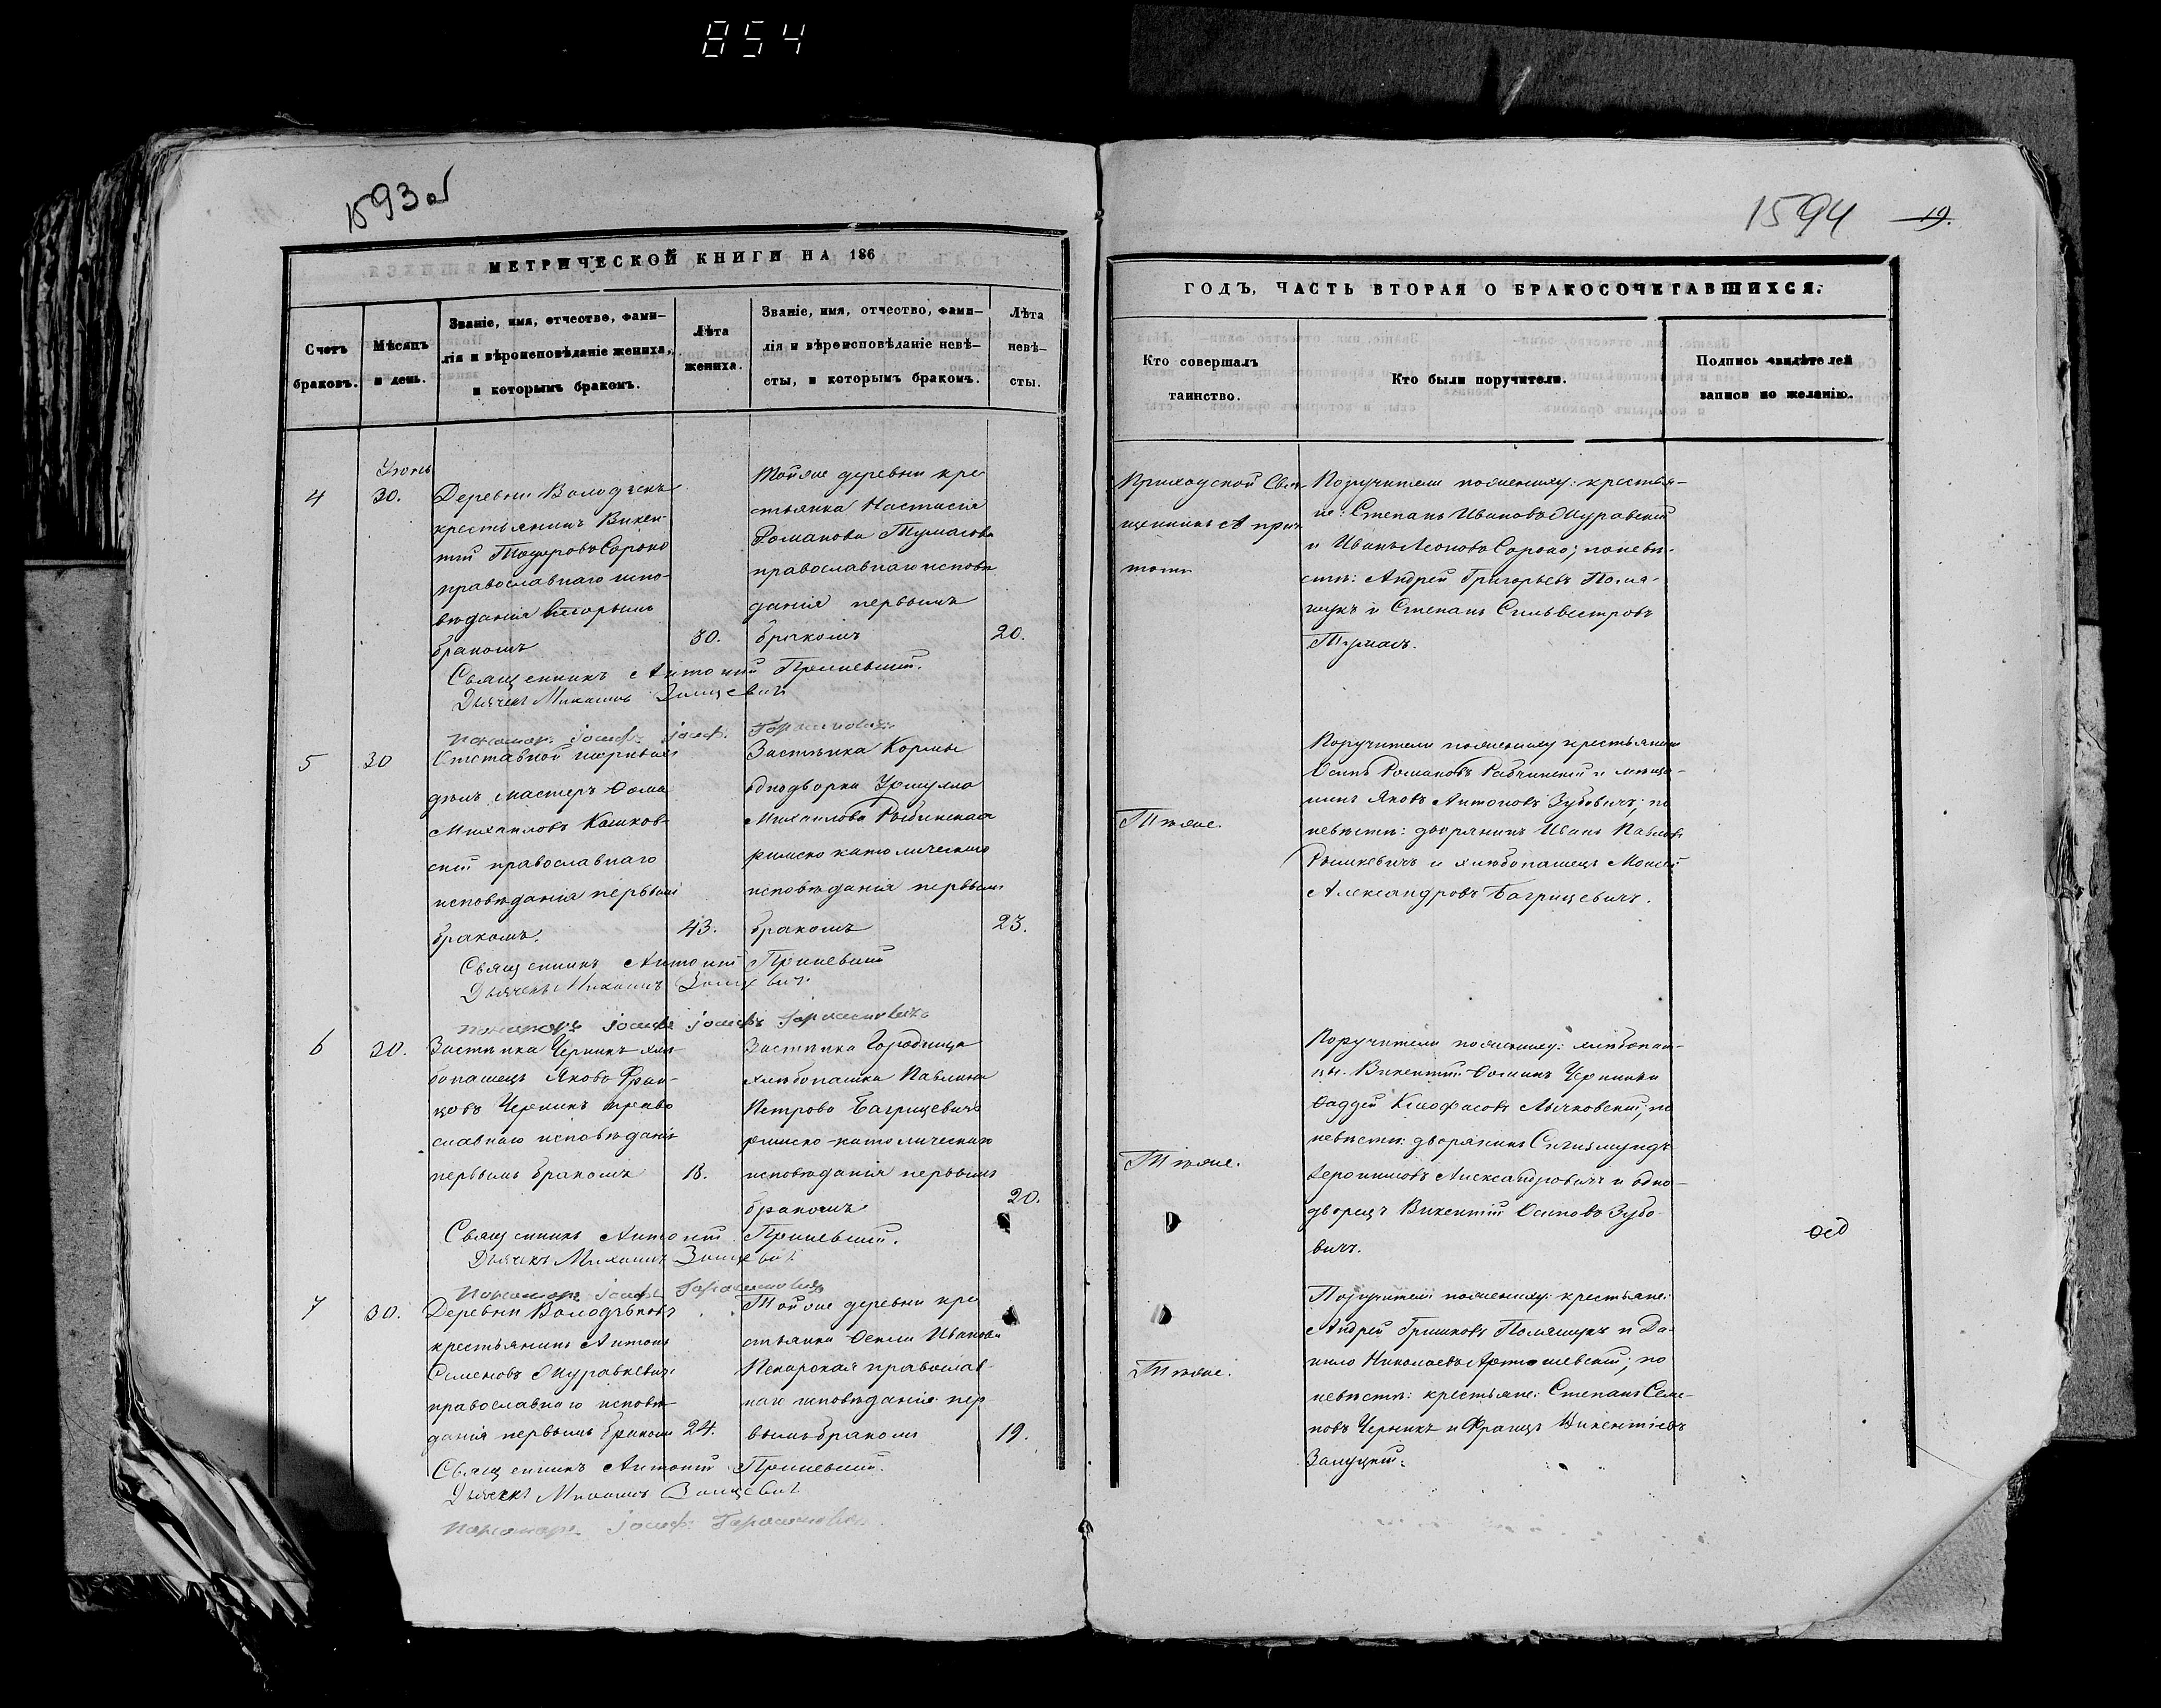 854
1593 об
МЕТРИЧЕСКОЙ КНИГИ НА 186
Счетъ
браковъ.
Мѣсяцъ
и день.
Званіе, имя, отчество, фами-
лія и вѣроисповѣданіе жениха,
и которымъ бракомъ.
Лѣта
жениха.
Званіе, имя, отчество, фами-
лія и вѣроисповѣданіе невѣ-
сты, и которымъ бракомъ.
Лѣта
невѣ-
сты.
4
30.
Деревни
крестьянинъ Викен-
тій Сороко
православнаго испо-
вѣданія вторымъ
бракомъ
30.
Тойже деревни кре
стьянка Настасія
Романова Тумасова
православнаго исповѣ
данія первымъ
бракомъ
20.
Священникъ Антоній
Дьячекъ Михаилъ
Пономарь Іосифъ
5
30
Отставной
дѣлъ мастеръ Ѳома
Михаиловъ Кашков-
скій православнаго
исповѣданія первымъ
бракомъ.
43.
Застѣнка Кормы
однодворка Уршуля
Михаилова
римско католическаго
исповѣданія первымъ
бракомъ
23.
Священникъ Антоній
Дьячекъ Михаилъ
Пономарь Іосифъ
6
30.
Застѣнка Черникъ хлѣ-
бопашецъ Яковъ Фран-
цовъ Черникъ право
славнаго исповѣданія
первымъ бракомъ
18.
Застѣнка Городница
хлѣбопашка Павлина
Петрова Багрицевичъ
римско-католическаго
исповѣданія первымъ
бракомъ
20.
Священникъ Антоній
Дьячекъ Михаилъ
Пономарь Іосифъ
7
30.
Деревни
крестьянинъ Антонъ
Семеновъ Муравкевичъ
православнаго исповѣ-
данія первымъ бракомъ
24.
Тойже деревни кре
стьянка Ѳекли Иванова
Пекарская православ
наго исповѣданія пер
вымъ бракомъ
19.
Священникъ Антоній
Дьячекъ Михаилъ
Пономарь Іосифъ
1594
19.
ГОДЪ, ЧАСТЬ ВТОРАЯ О БРАКОСОЧЕТАВШИХСЯ.
Кто совершалъ
таинство.
Кто были поручители.
Подпись свидѣтелей
записи по желанію.
Приходской Свя-
щенникъ
Поручители по жениху: крестья-
не: Степанъ Ивановъ Муравскій
и Иванъ Сороко; по невѣ-
стѣ: Андрей Григорьевъ Поля-
щукъ и Степанъ Сильвестровъ
Тумасъ.
Тѣже.
Поручители по жениху крестьянинъ
Осипъ Романовъ Рабчинскій и мѣща-
нинъ Яковъ Антоновъ Зубовичъ; по
невѣстѣ: дворянинъ Иванъ Павловъ
и хлѣбопашецъ Моисей
Александровъ Багрицевичъ.
Тѣже.
Поручители по жениху: хлѣбопаш-
цы: Викентій Ѳоминъ Черникъ и
Ѳаддей по
невѣстѣ: дворянинъ Сигизмундъ
Іеронимовъ Александровичъ и одно-
дворецъ Викентій Осиповъ Зубо-
вичъ.
Тѣже.
Поручители по жениху: крестьяне:
Андрей Гришковъ Полящукъ и Да-
нило Николаевъ по
невѣстѣ: крестьяне: Степанъ Семе-
новъ Черникъ и Францъ Викентіевъ
Залуцкій.